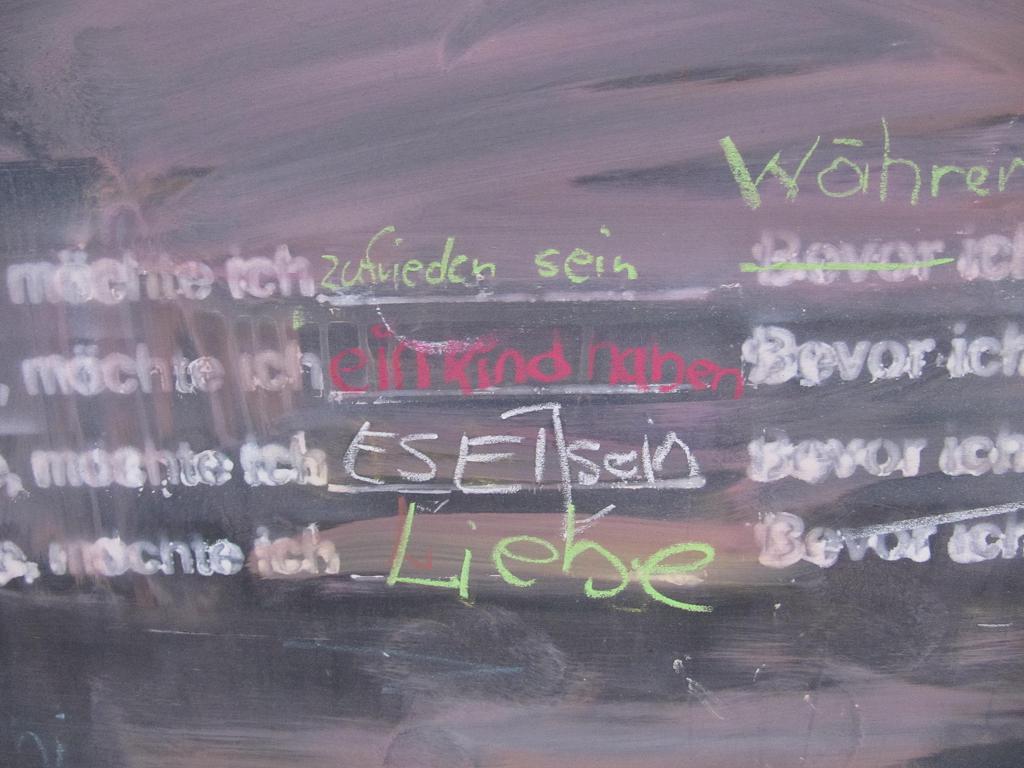 Währen
möchte ich zufrieden sein Bevor ich
, möchte ich ein kind haben Bevor ich
, möchte ich ESEl sein Bevor ich
s, möchte ich Liebe Bevor ich